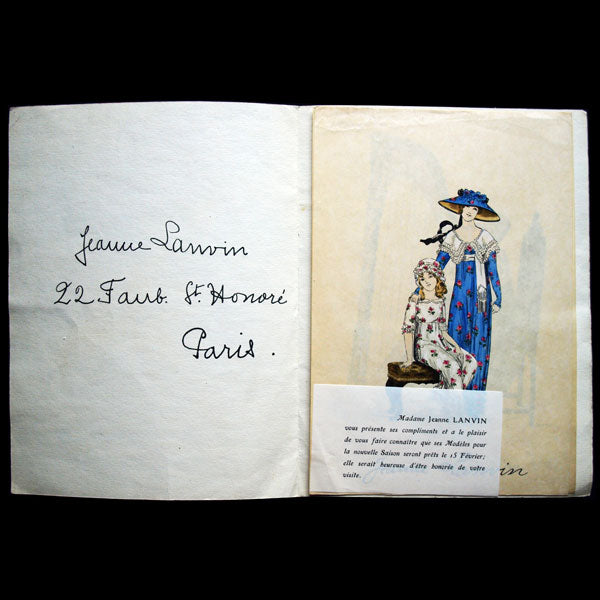 Jeanne Lanvin
22 Faub. St. Honoré
Paris.
Madame Jeanne LANVIN
vous présente ses compliments et a le plaisir
de vous faire connaître que ses Modèles pour
la nouvelle Saison seront prêts le 15 Février;
elle serait heureuse d'être honorée de votre
visite.